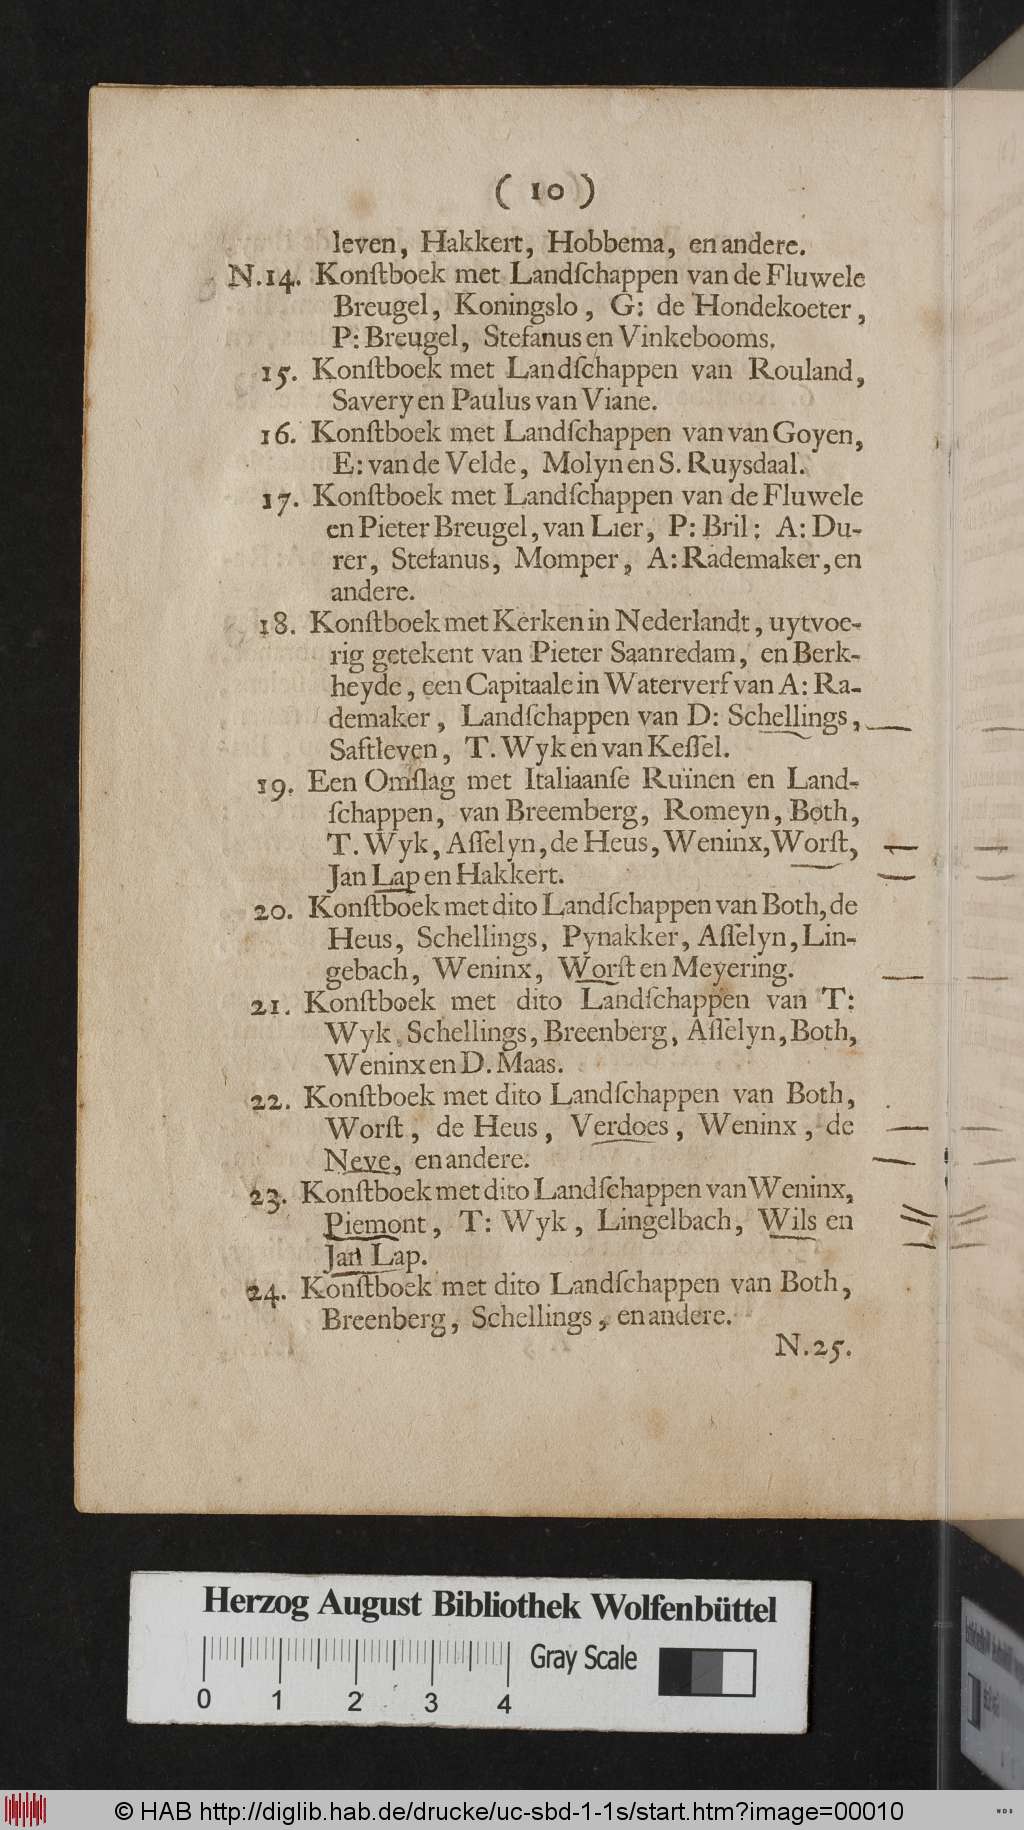 ( 10 )
leven, Hakkert, Hobbema, en andere.
N.14. Konſtboek met Landſchappen van de Fluwele
Breugel, Koningslo, G: de Hondekoeter,
P: Breugel, Stefanus en Vinkebooms.
15. Konſtboek met Landſchappen van Rouland,
Savery en Paulus van Viane.
16. Konſtboek met Landſchappen van van Goyen,
E: van de Velde, Molyn en S. Ruysdaal.
17. Konſtboek met Landſchappen van de Fluwele
en Pieter Breugel, van Lier, P: Bril: A: Du-
rer, Stefanus, Momper, A: Rademaker, en
andere.
18. Konſtboek met Kerken in Nederlandt, uytvoe-
rig getekent van Pieter Saanredam, en Berk-
heyde, een Capitaale in Waterverf van A: Ra-
demaker, Landſchappen van D: Schellings,
Saftleven, T. Wyk en van Keſſel.
19. Een Omſlag met Italiaanſe Ruinen en Land-
ſchappen, van Breemberg, Romeyn, Both,
T. Wyk, Aſſelyn, de Heus, Weninx, Worſt,
Jan Lap en Hakkert.
20. Konſtboek met dito Landſchappen van Both, de
Heus, Schellings, Pynakker, Aſſelyn, Lin-
gebach, Weninx, Worſt en Meyering.
21. Konſtboek met dito Landſchappen van T:
Wyk, Schellings, Breenberg, Aſſelyn, Both,
Weninx en D. Maas.
22. Konſtboek met dito Landſchappen van Both,
Worſt, de Heus, Verdoes, Weninx, de
Neve, en andere.
23. Konſtboek met dito Landſchappen van Weninx,
Piemont, T: Wyk, Lingelbach, Wils en
Jan Lap.
24. Konſtboek met dito Landſchappen van Both,
Breenberg, Schellings, en andere.
N.25.
Herzog August Bibliothek Wolfenbüttel
Gray Scale
0 1 2 3 4
© HAB http://diglib.hab.de/drucke/uc-sbd-1-1s/start.htm?image=00010